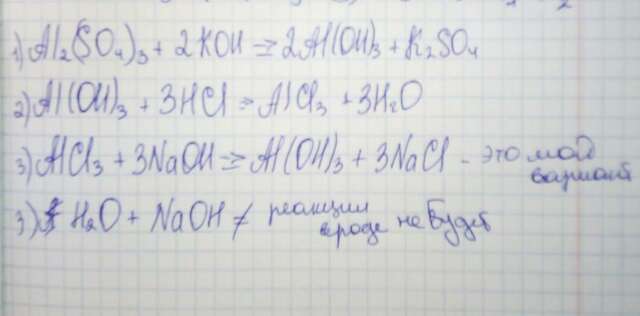 1) Al₂(SO₄)₃ + 2KOH => 2Al(OH)₃ + K₂SO₄
2) Al(OH)₃ + 3HCl = AlCl₃ + 3H₂O
3) AlCl₃ + 3NaOH => Al(OH)₃ + 3NaCl - это мой
вариант
3) H₂O + NaOH ≠ реакции
вроде не будет